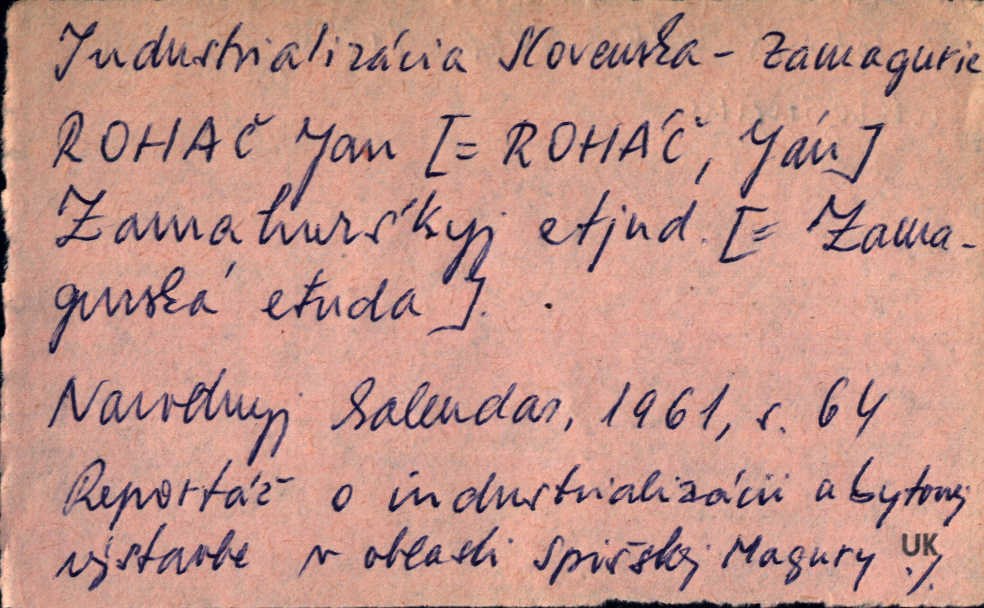 Industrializácia Slovenska - Zamagurie
ROHAČ Jan [= ROHÁČ, Ján]
Zamahurśkyj etjud. [= Zama-
gurská etuda].
Narodnyj kalendar, 1961, s. 64
Reportáž o industrializácii a bytovej
výstavbe v oblasti Spišskej Magury
UK